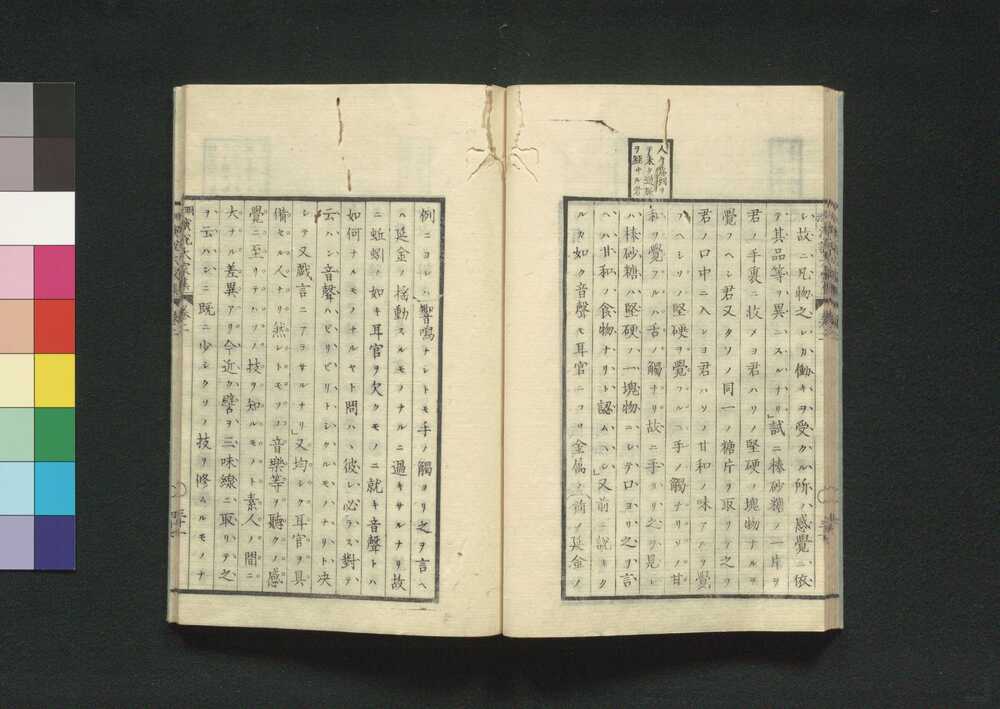 レ故ニ凡物之レカ働キヲ受クル所ノ感覺ニ依
テ其品等ヲ異ニスルナリ」試ニ棒砂糖ノ一片ヲ
君ノ手裏ニ收メヨ君ハソノ堅硬ノ塊物ナルヲ
覺フヘシ君又タソノ同一ノ糖片ヲ取リテ之ヲ
君ノ口中ニ入レヨ君ハソノ甘和ノ味アルヲ覺
フヘシソノ堅硬ヲ覺フルハ手ノ觸ナリソノ甘
和ヲ覺フルハ舌ノ觸ナリ故ニ手ヨリ之ヲ見レ
ハ棒砂糖ハ堅硬ノ一塊物ニシテ口ヨリ之ヲ言
ヘハ甘和ノ食物ナリト認ムヘシ」又前ニ説キ
ルカ如ク音聲モ耳官ニヨリ金属ノ前ノ延金ノ
例ニヨレハ聲鳴ナレトモ手ノ觸ヨリ之ヲ言ヘ
ハ延金ノ搖動スルモノナルニ過キサルナリ故
ニ蚯蚓ノ如キ耳官ヲ欠クモノニ就キ音聲トハ
如何ナルモノナルヤト問ハヽ彼レ必ラス對テ
云ハン音聲ハビリビリトシタルモノナリト决
シテ又戲言ニアラサルナリ」又均シク耳官ヲ具
備セル人ナリ然レトモソノ音樂等ヲ聽クノ感
覺ニ至リテハソノ技ヲ知ルモノト素人ノ間ニ
大ナル差異アリ今近ク譬ヲ三味線ニ取リテ之
ヲ云ハンニ既ニ少シクソノ技ヲ修ムルモノナ
卷二
三十一